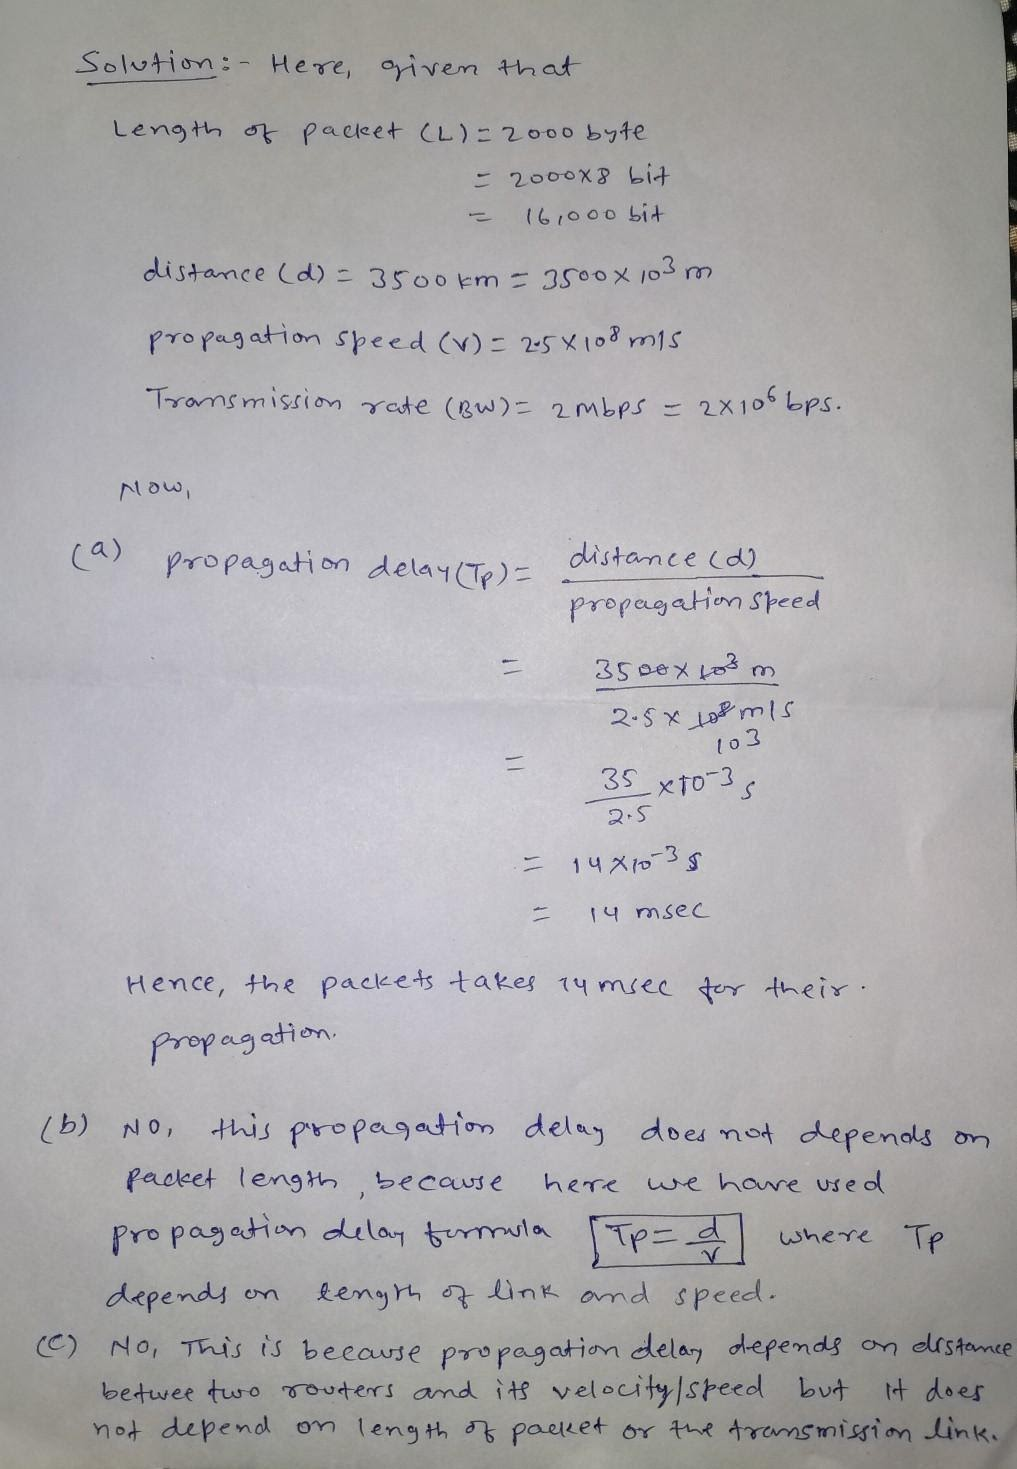 Solution:- Here, given that
Length of packet (L) = 2000 byte
= 2000x8 bit
= 16,000 bit
distance (d) = 3500 km = 3500 x 10³ m
propagation speed (v) = 2.5 x 10⁸ m/s
Transmission rate (BW) = 2 mbps = 2x10⁶ bps.
Now,
(a) propagation delay (Tp) = distance (d) / propagation speed
= 3500 x 10³ m / 2.5 x 10⁸ m/s
10³
= 35 / 2.5 x 10⁻³ s
= 14 x 10⁻³ s
= 14 msec
Hence, the packets takes 14 msec for their.
propagation.
(b) NO, this propagation delay does not depends on
packet length, because here we have used
propagation delay formula [Tp = d/v] where Tp
depends on length of link and speed.
(c) NO, This is because propagation delay depends on distance
betwee two routers and its velocity/speed but it does
not depend on length of packet or the transmission link.